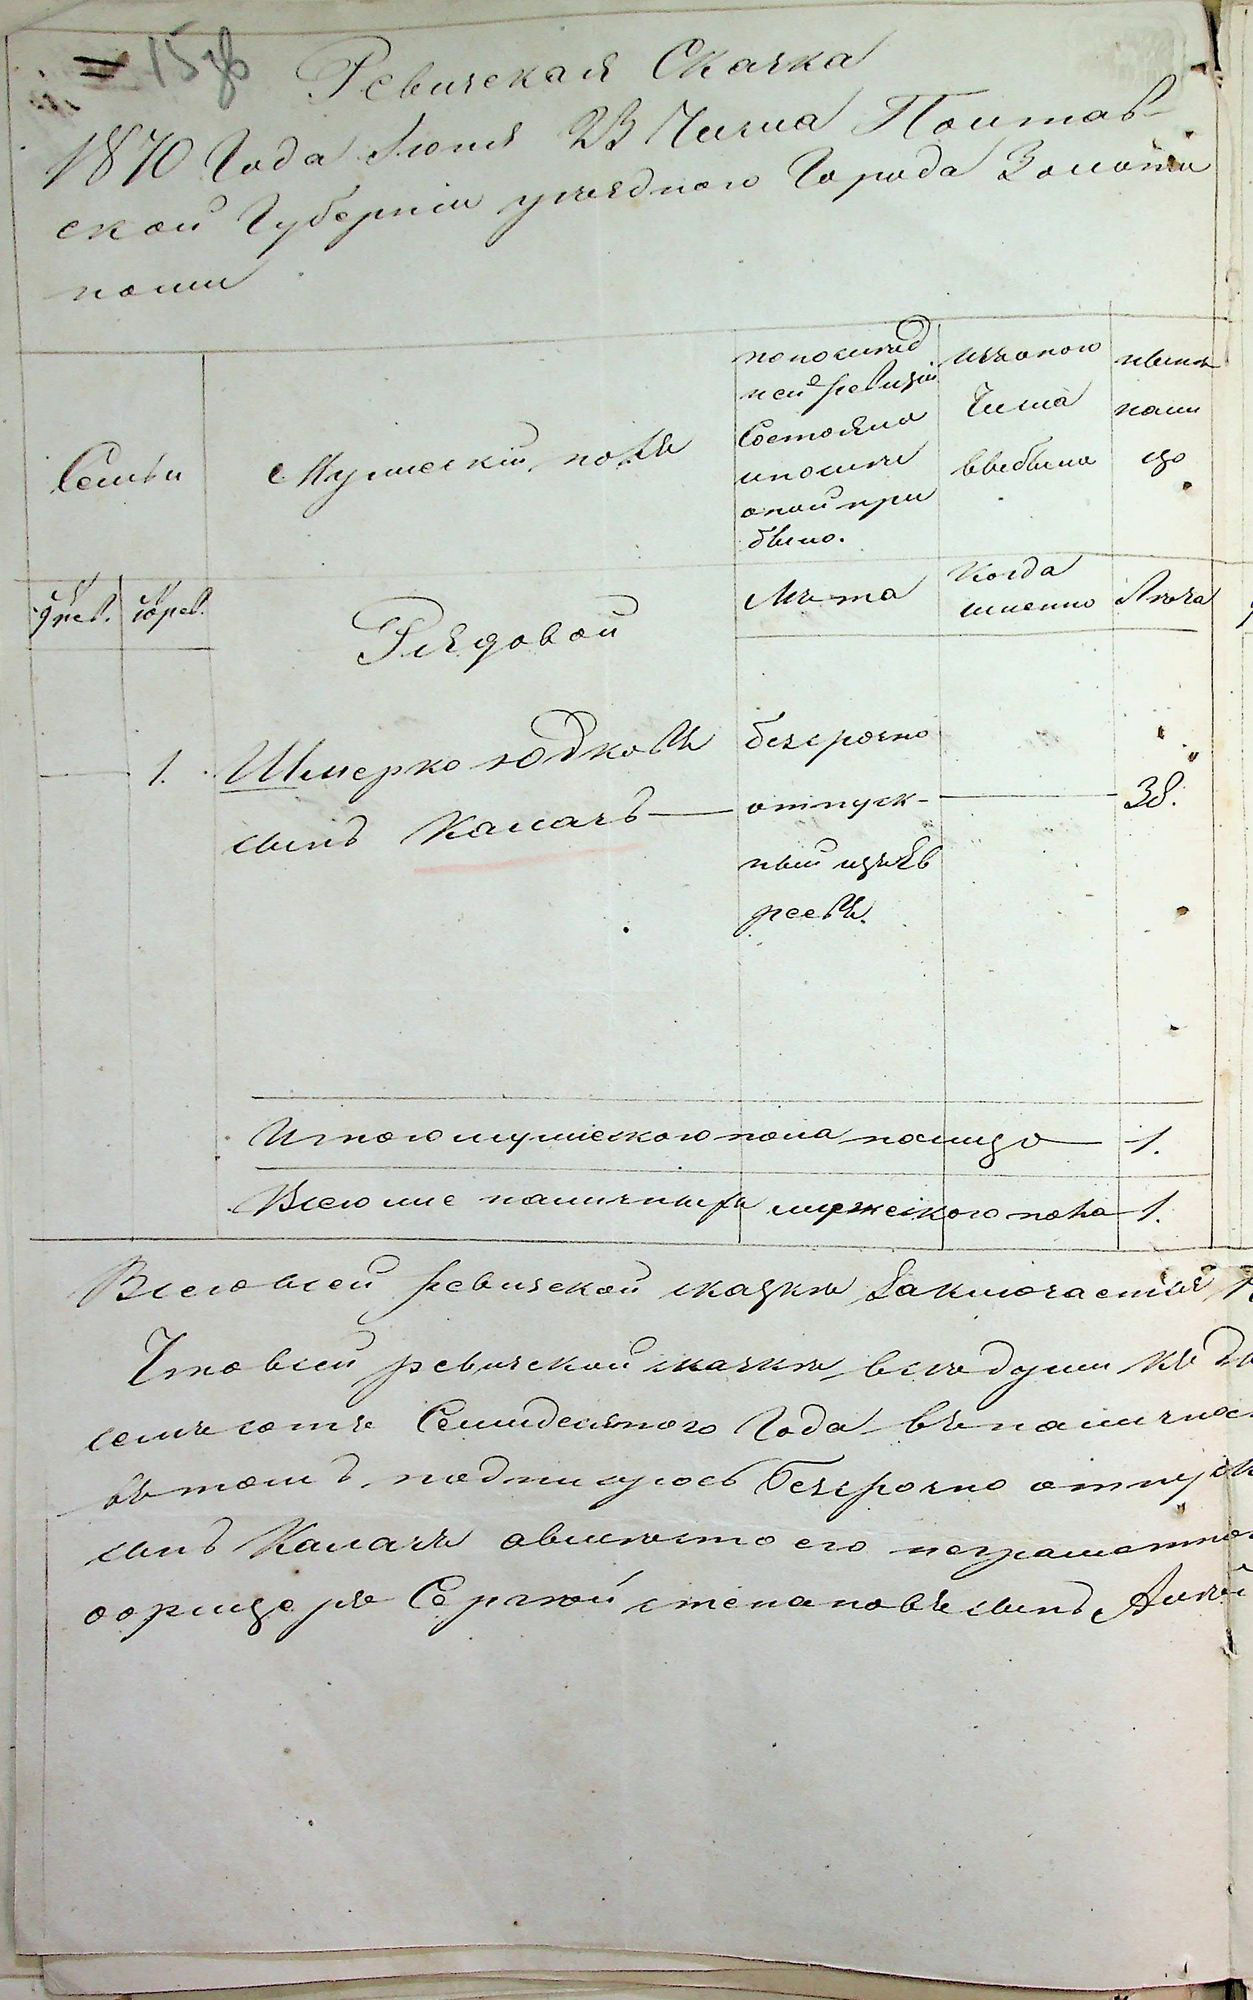 15 зв
Ревизская Сказка
1870 Года Июня 23 Числа Полтав-
ской Губернии уезднаго Города Золото
ноши
Семьи
Мужескій полъ
по послѣд
ней ревизіи
Состояло
и после
оной при
было.
изъ оного
Числа
выбыло
ныне
нали
цо
9 рев. 10 рев.
Рядовой
Лѣта
Когда
именно
Лѣта
1. Шмерко Юдковъ
сынъ Калачъ
безсрочно
отпуск-
ный изъ Ев
реевъ.
38.
Итого мужеского пола на лицо 1.
Всего же наличныхъ мужеского пола 1.
Всего въ сей ревизской сказки Заключается
Что в сей ревизской сказки все души къ
семьсотъ Семидесятого Года въ наличнос
въ томъ подписуюсь безсрочно отпуск
сынъ Калачъ а вместо его неграмотно
офицеръ Сергей степановъ сынъ